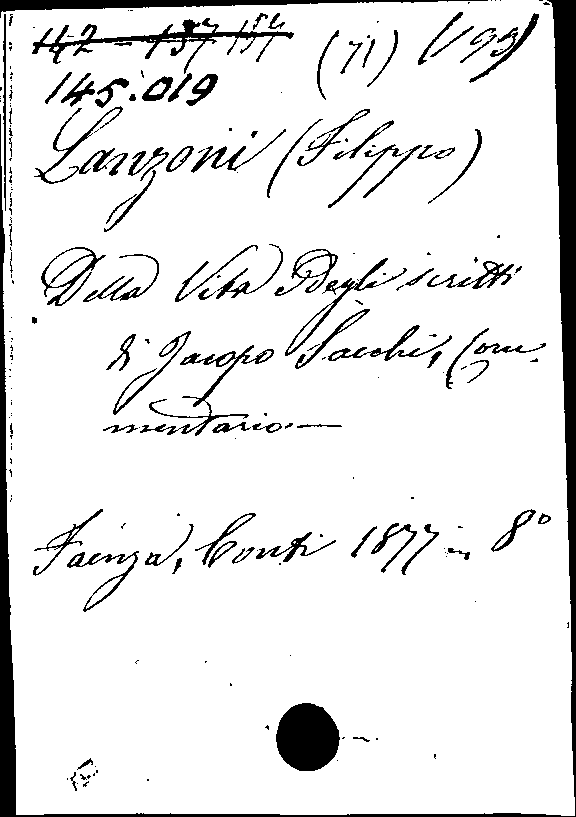 142 - 137 154 (71) (193)
145.019
Lanzoni (Filippo)
Della Vita e degli scritti
di Jacopo Sacchi, Com-
mentario. —
Faenza, Conti 1877 in 8°